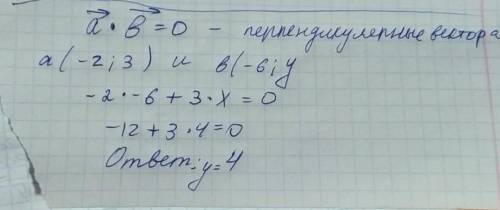 a⃗ · в⃗ = 0 – перпендикулерные вектора
a(-2;3) и в(-6;y
-2·-6+3·x=0
-12+3·4=0
Ответ: y=4